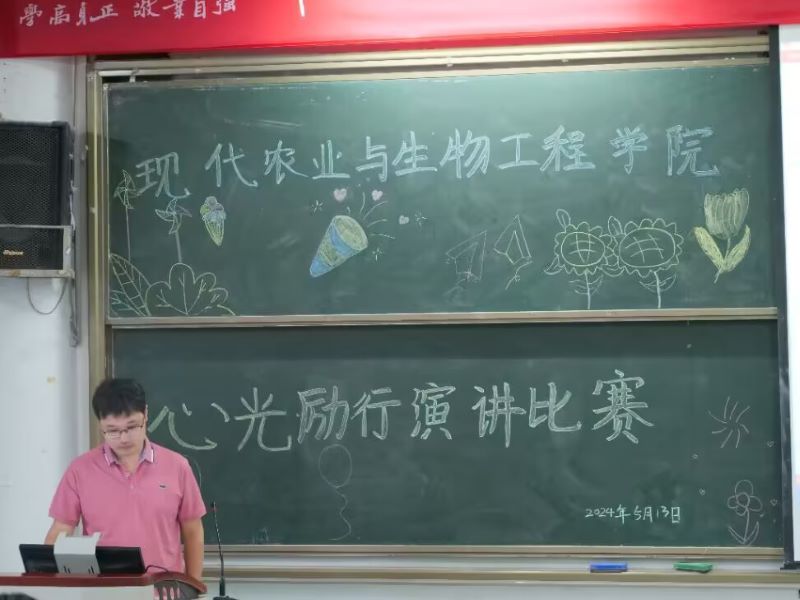 學高身正 敬業自强
现代农业与生物工程学院
心光励行演讲比赛
2024年5月13日